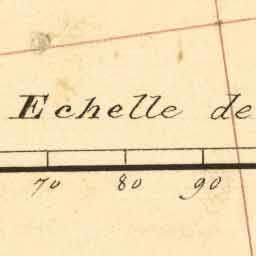 Echelle de
70 80 90